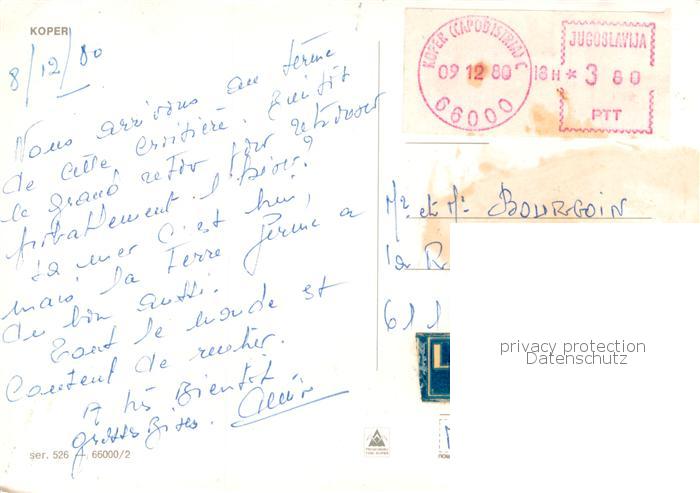 KOPER
8/12/80
Nous arrivons au terme
de cette croisière. Bientôt
le grand retour pour retrouver
probablement l'hiver?
La mer c'est beau,
mais la Terre ferme a
du bon aussi.
Tout le monde est
content de rentrer.
A très Bientôt
grosses Bises.
ser. 526 66000/2
KOPER (CAPODISTRIA) C
09 12 80 18 H
66000
JUGOSLAVIJA
* 3 80
PTT
Mr. et Me BOURGOIN
La R
61
L
privacy protection
Datenschutz